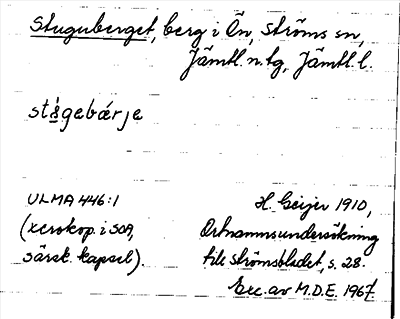 Stuguberget, berg i Ön, Ströms sn,
Jämtl. n. tg, Jämtl. l.
stå̀gebǽrje
ULMA 446:1
(xerokop. i SOA,
särsk. kapsel).
H. Geijer 1910,
Ortnamnsundersökning
till strömsbladet, s. 28.
Exc. av M.D.E. 1967.